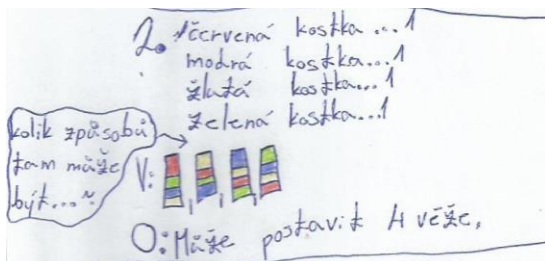 2. červená kostka ... 1
modrá kostka... 1
žlutá kostka... 1
zelená kostka... 1
kolik způsobů
tam může
být...?
V:
O: Může postavit 4 věže.